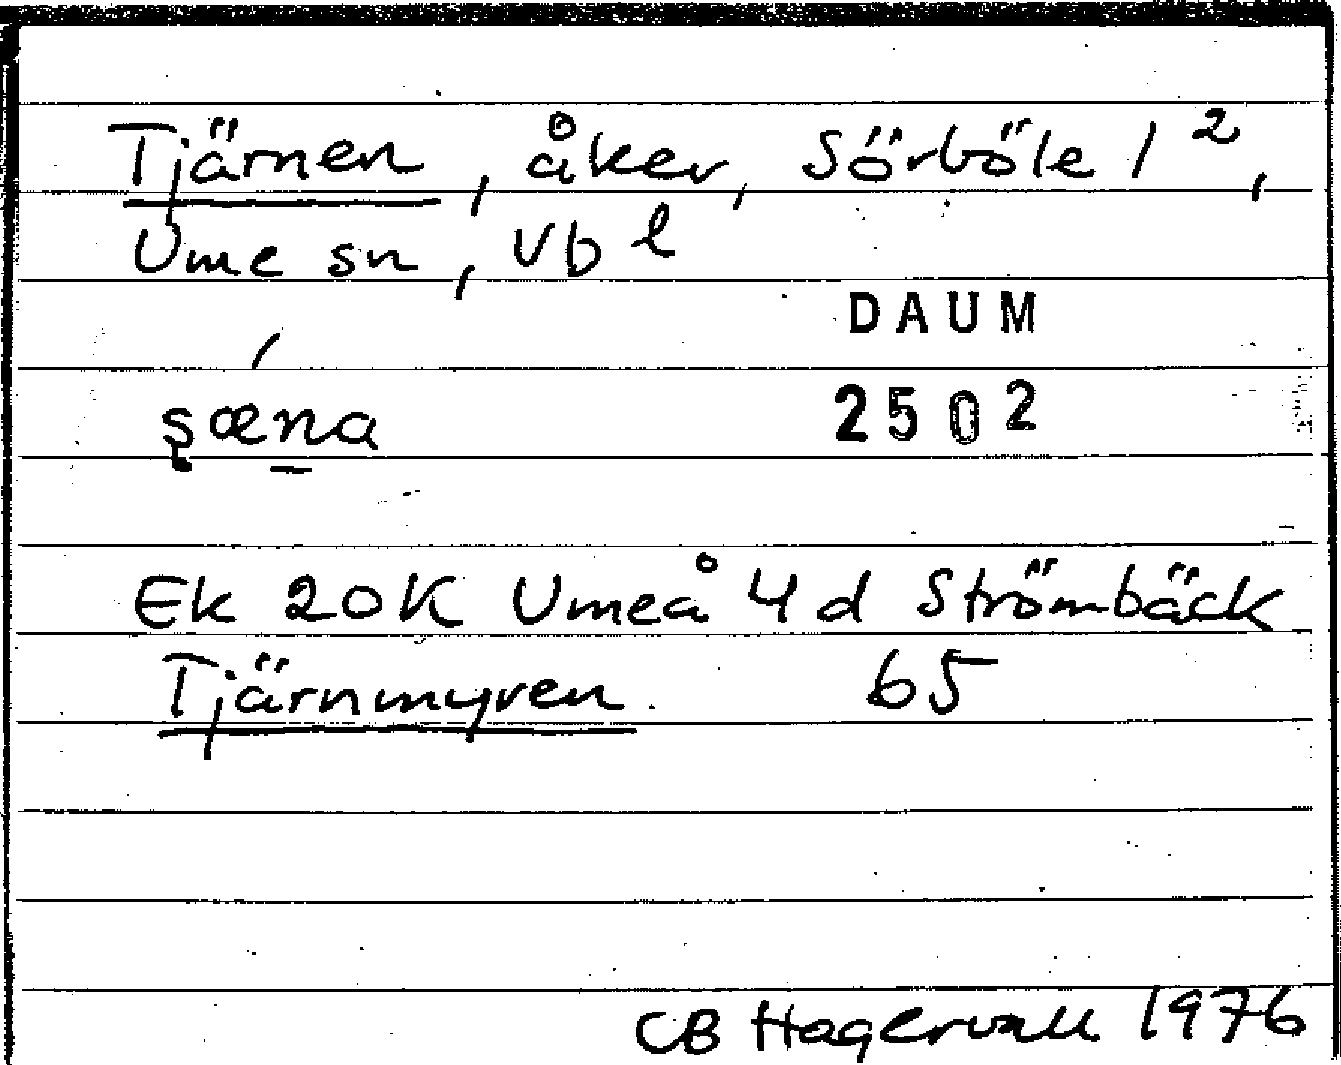 Tjärnen, åker, Sörböle 1²,
Ume sn, Vb l
DAUM
ʂæna
2502
Ek 20K Umeå 4d Strömbäck
Tjärnmyren. 65
CB Hagervall 1976